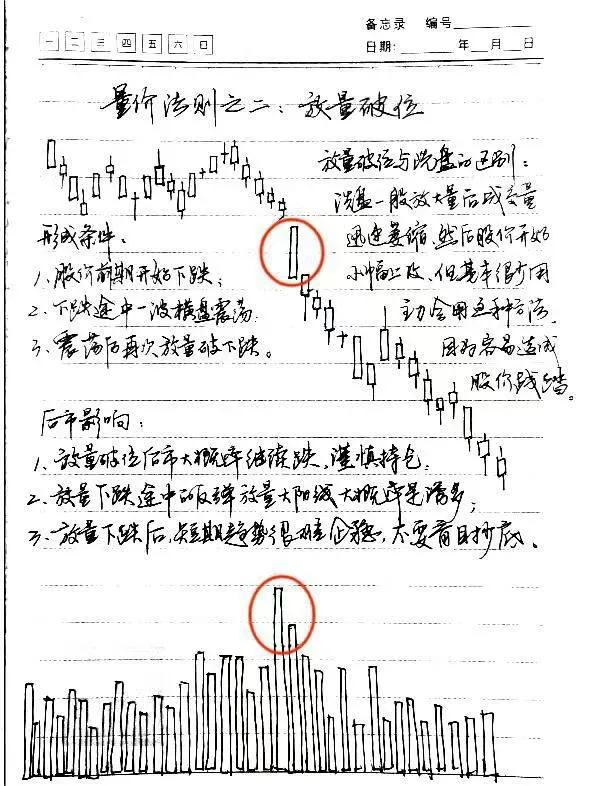 备忘录 编号
一 二 三 四 五 六 日
日期: 年 月 日
量价法则之二：放量破位
放量破位与洗盘的区别：
洗盘一般放大量后成交量
迅速萎缩,然后股价开始
小幅上攻,但基本很少用
主力会用这种方法,
因为容易造成
股价踩踏。
形成条件:
1、股价前期开始下跌;
2、下跌途中一波横盘震荡.
3、震荡后再次放量破下跌。
后市影响:
1、放量破位后市大概率继续跌,谨慎持仓.
2、放量下跌途中的反弹放量大阳线大概率是诱多;
3、放量下跌后,短期趋势很难企稳,不要盲目抄底。